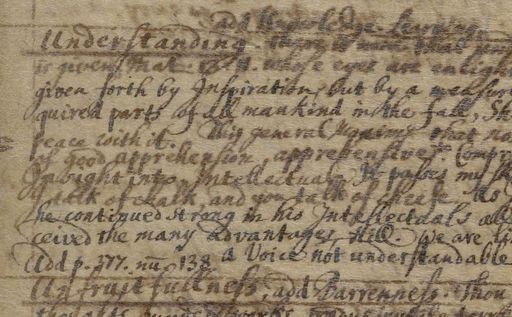 add Knowledge. Learning.
Understanding. There is none that
is given that whose eyes are enligh
given forth by Inspiration, but by a measur
quired parts of all mankind in the fall, Sh
peace with it. His general Maxime that no
of good apprehension, apprehensive. Compr
Insight into, Intellectual. It passes my
I talk of chalk, and you talk of cheese. So
he continued strong in his Intellectuals all
ceived the many advantages, still. We are
Add p. 377. nu. 138 A Voice not understandable
Unfruitfullness, add Barrenness. Thou
thoughts works